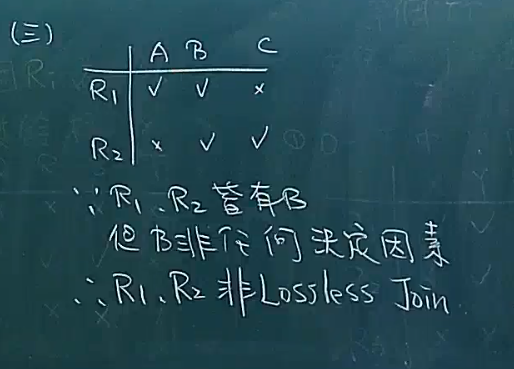 (三)
A B C
R1 ✓ ✓ ×
R2 × ✓ ✓
∵R1、R2皆有B
但B非任何決定因素
∴R1、R2非Lossless Join.